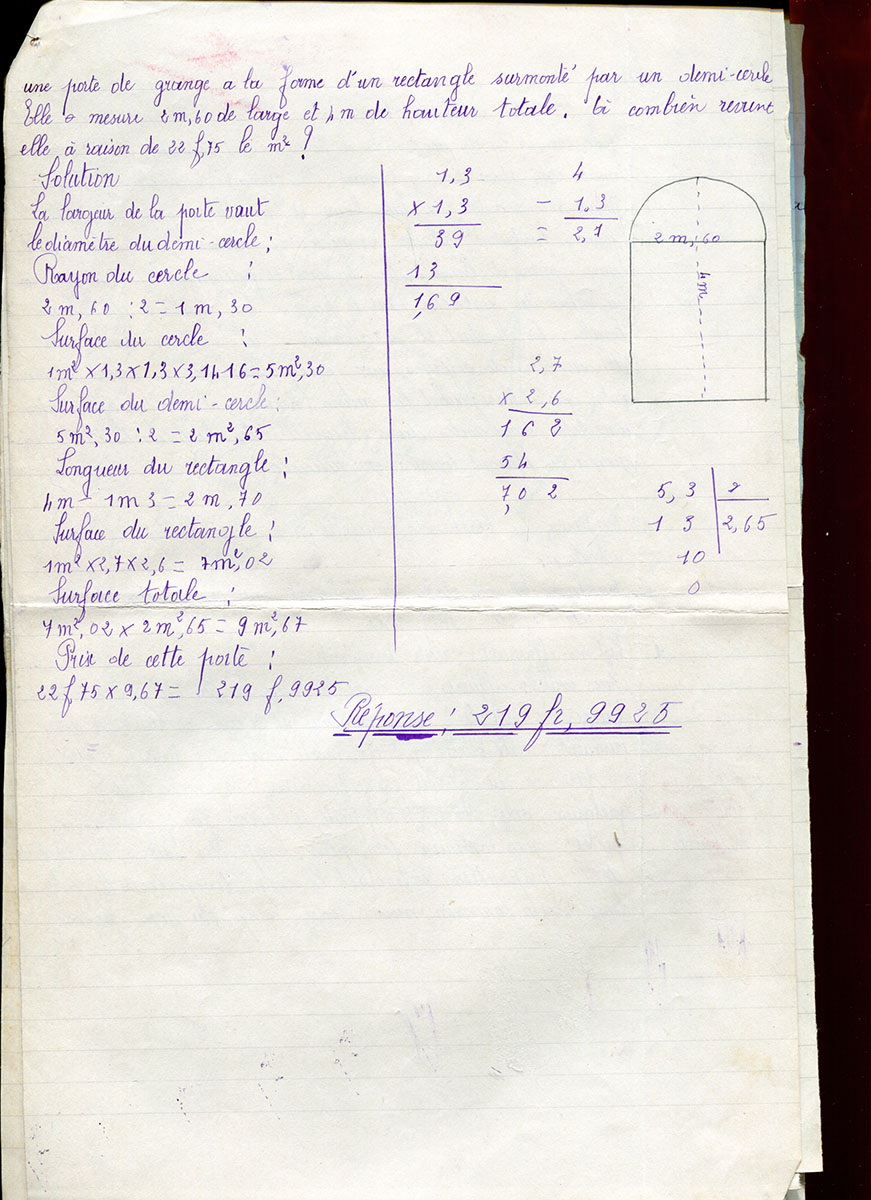 une porte de grange a la forme d'un rectangle surmonté par un demi-cercle
Elle a mesure 2m,60 de large et 4m de hauteur totale. à combien revient
elle à raison de 22 f,75 le m² ?
Solution
La largeur de la porte vaut
le diamètre du demi-cercle ;
Rayon du cercle :
2m,60 : 2 = 1m,30
Surface du cercle :
1m² × 1,3 × 1,3 × 3,1416 = 5m²,30
Surface du demi-cercle :
5m²,30 : 2 = 2m²,65
Longueur du rectangle :
4m - 1m3 = 2m,70
Surface du rectangle :
1m² × 2,7 × 2,6 = 7m²,02
Surface totale :
7m²,02 × 2m²,65 = 9m²,67
Prix de cette porte :
22f,75 × 9,67 = 219 f,9925
1,3
× 1,3
39
13
1,69
4
- 1,3
= 2,7
2m,60
4m
2,7
× 2,6
162
54
7,02
5,3 2
1 3 2,65
10
0
Réponse : 219 fr, 9925